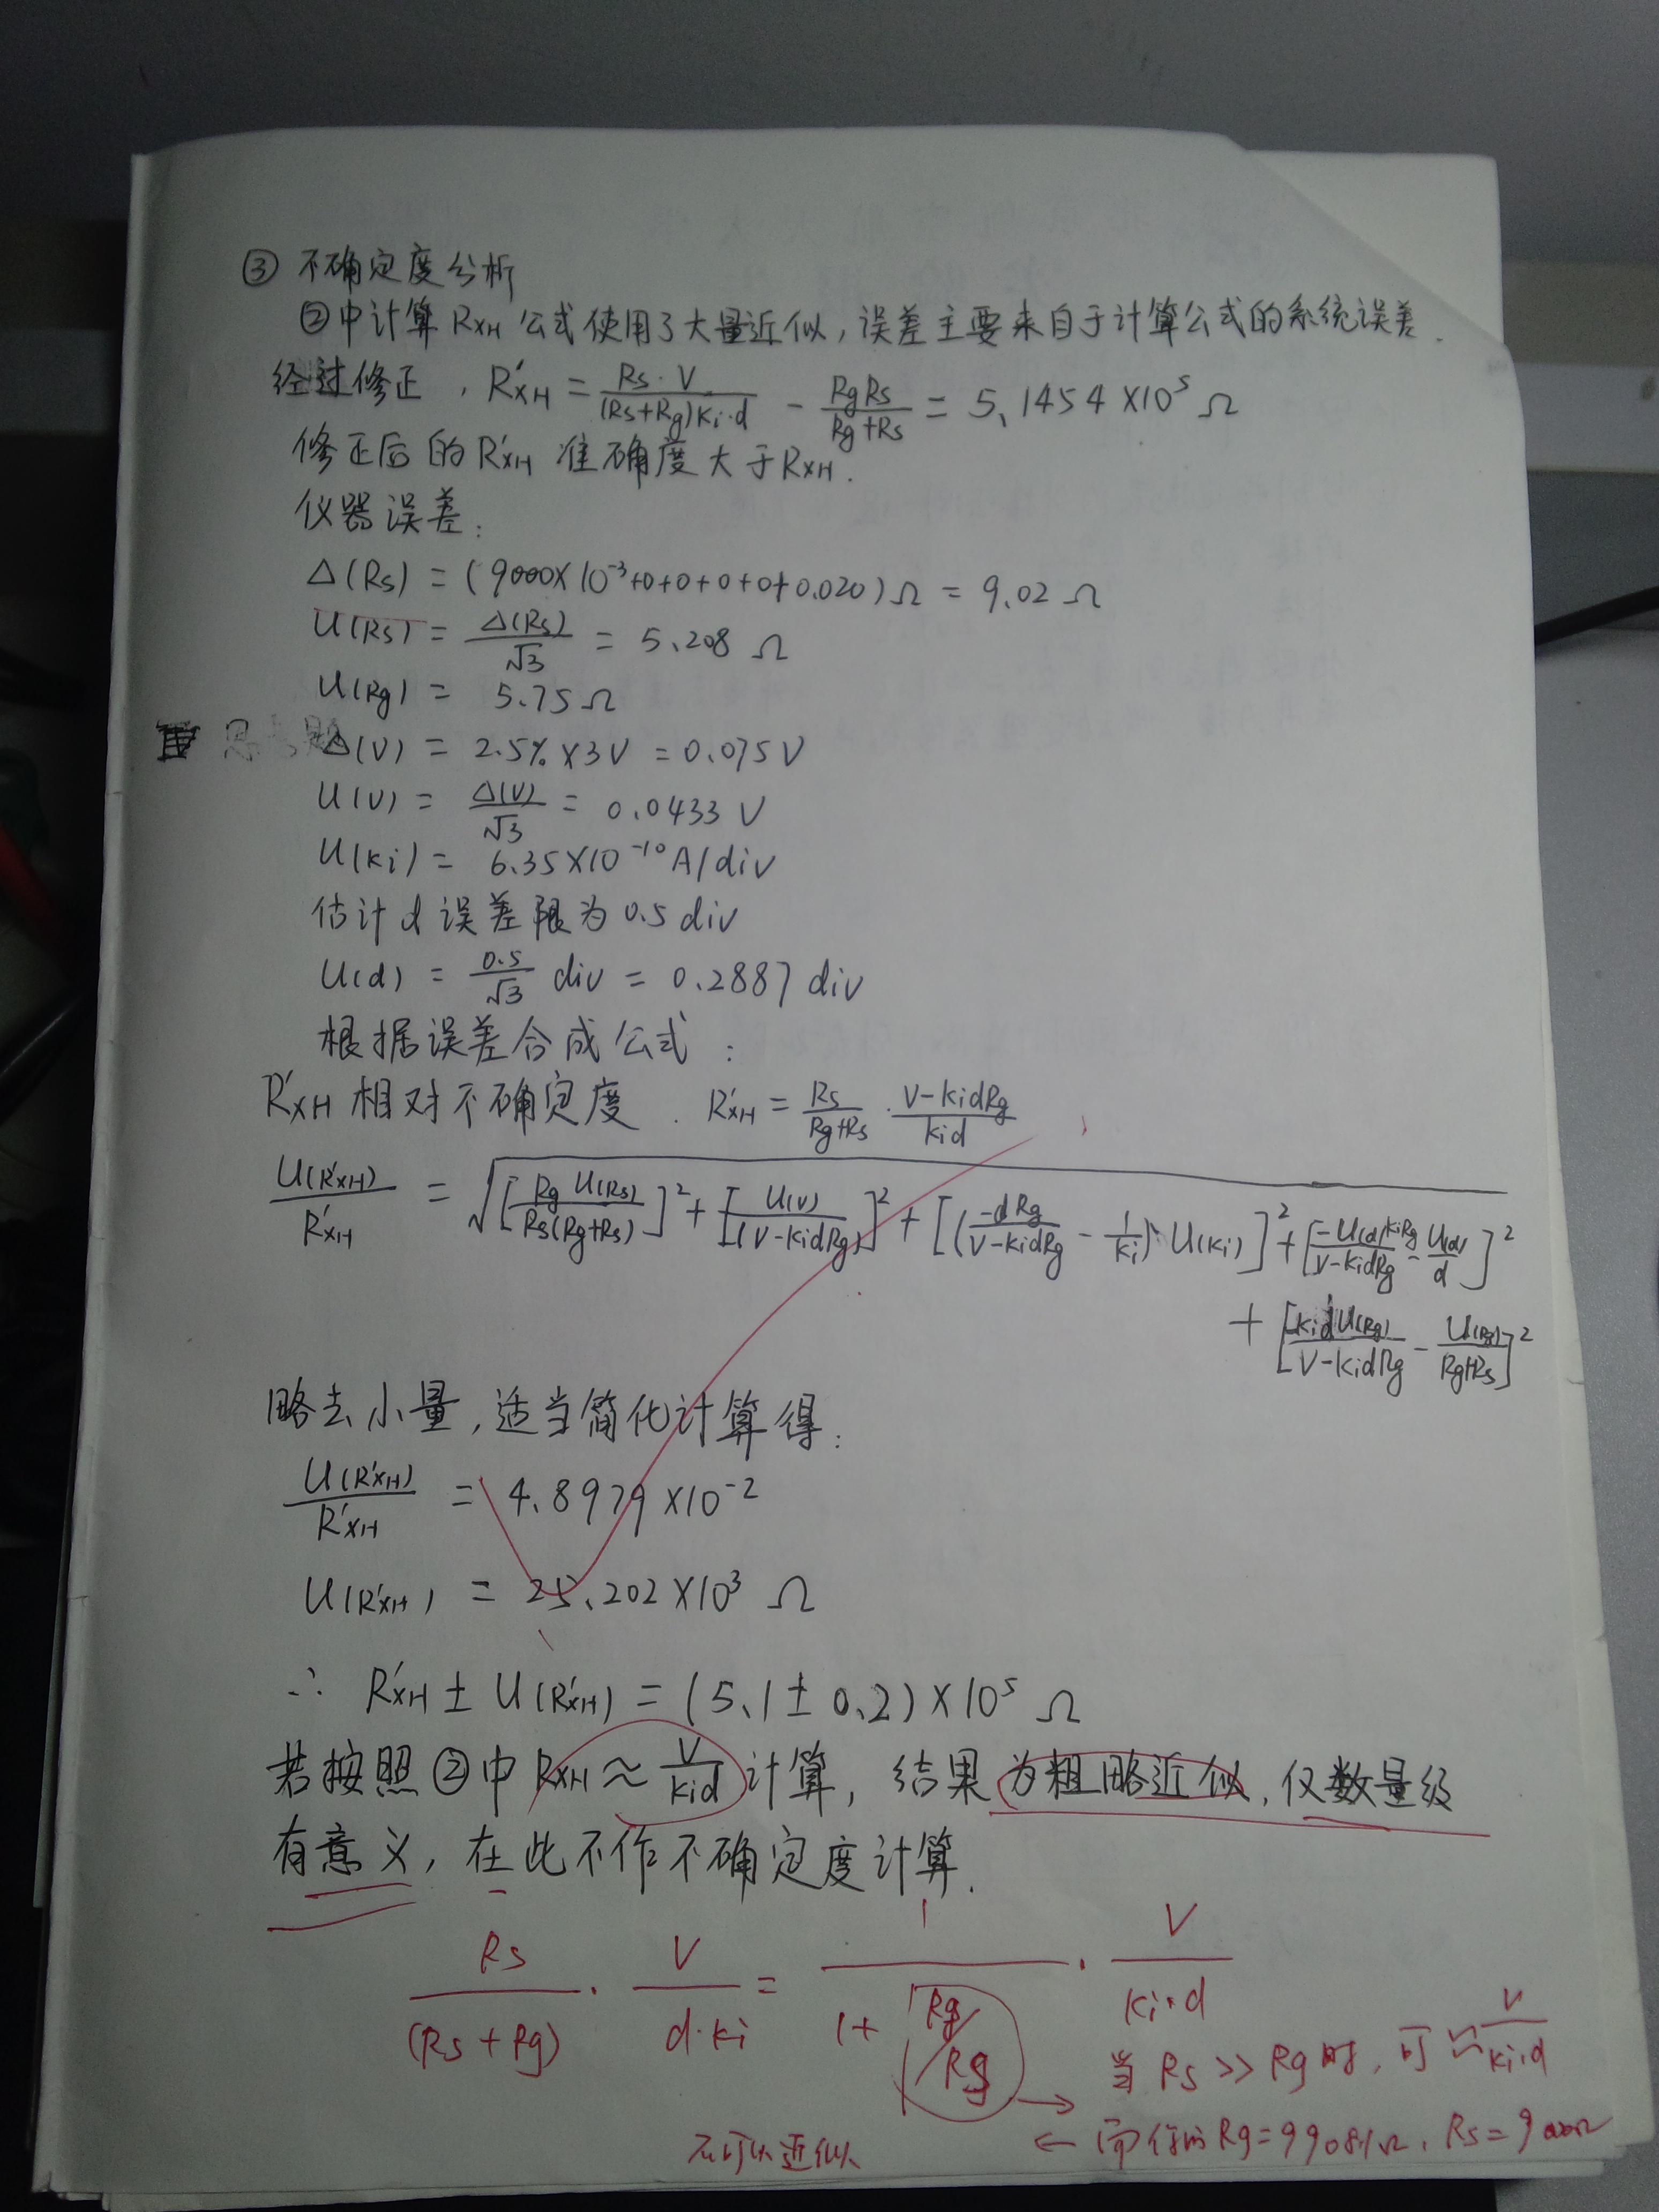 ③ 不确定度分析
②中计算 RxH 公式使用了大量近似,误差主要来自于计算公式的系统误差.
经过修正, R'xH = Rs·V/((Rs+Rg)Ki·d) - RgRs/(Rg+Rs) = 5.1454×10⁵ Ω
修正后的R'xH 准确度大于RxH.
仪器误差:
Δ(Rs) = (9000×10⁻³+0+0+0+0+0.020)Ω = 9.02 Ω
U(Rs) = Δ(Rs)/√3 = 5.208 Ω
U(Rg) = 5.75Ω
Δ(V) = 2.5%×3V = 0.075V
U(V) = Δ(V)/√3 = 0.0433 V
U(Ki) = 6.35×10⁻¹⁰A/div
估计d误差限为0.5div
U(d) = 0.5/√3 div = 0.2887 div
根据误差合成公式:
R'xH 相对不确定度. R'xH = Rs/(Rg+Rs) · (V-KidRg)/(Kid)
U(R'xH)/R'xH = √([Rg U(Rs)/(Rs(Rg+Rs))]² + [U(V)/(V-KidRg)]² + [(-dRg/(V-KidRg) - 1/Ki)·U(Ki)]² + [-U(d)KiRg/(V-KidRg) - U(d)/d]²
+ [KidU(Rg)/(V-KidRg) - U(Rg)/(Rg+Rs)]²
略去小量,适当简化计算得:
U(R'xH)/R'xH = 4.8979×10⁻²
U(R'xH) = 25.202×10³ Ω
∴ R'xH ± U(R'xH) = (5.1±0.2)×10⁵ Ω
若按照②中 RxH ≈ V/(Kid) 计算, 结果为粗略近似, 仅数量级
有意义, 在此不作不确定度计算.
Rs/(Rs+Rg) · V/(d·Ki) = 1/(1+Rg/Rg) · V/(Ki·d)
当 Rs >> Rg 时, 可 ≈ V/(Ki·d)
不可以近似 ← 而你的 Rg=9908Ω, Rs=9000Ω